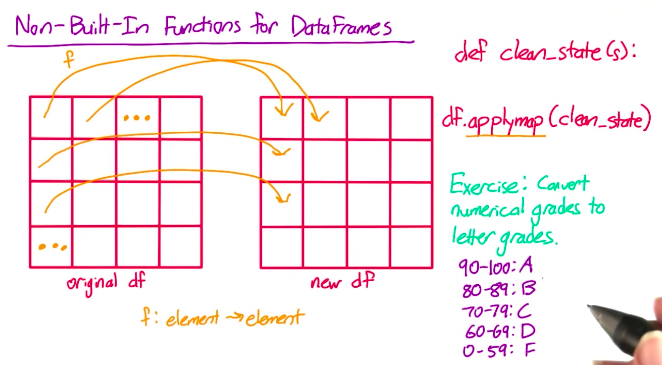 Non-Built-In Functions for DataFrames
f
...
...
original df
new df
f: element → element
def clean_state(s):
df.applymap(clean_state)
Exercise: Convert
numerical grades to
letter grades.
90-100: A
80-89: B
70-79: C
60-69: D
0-59: F